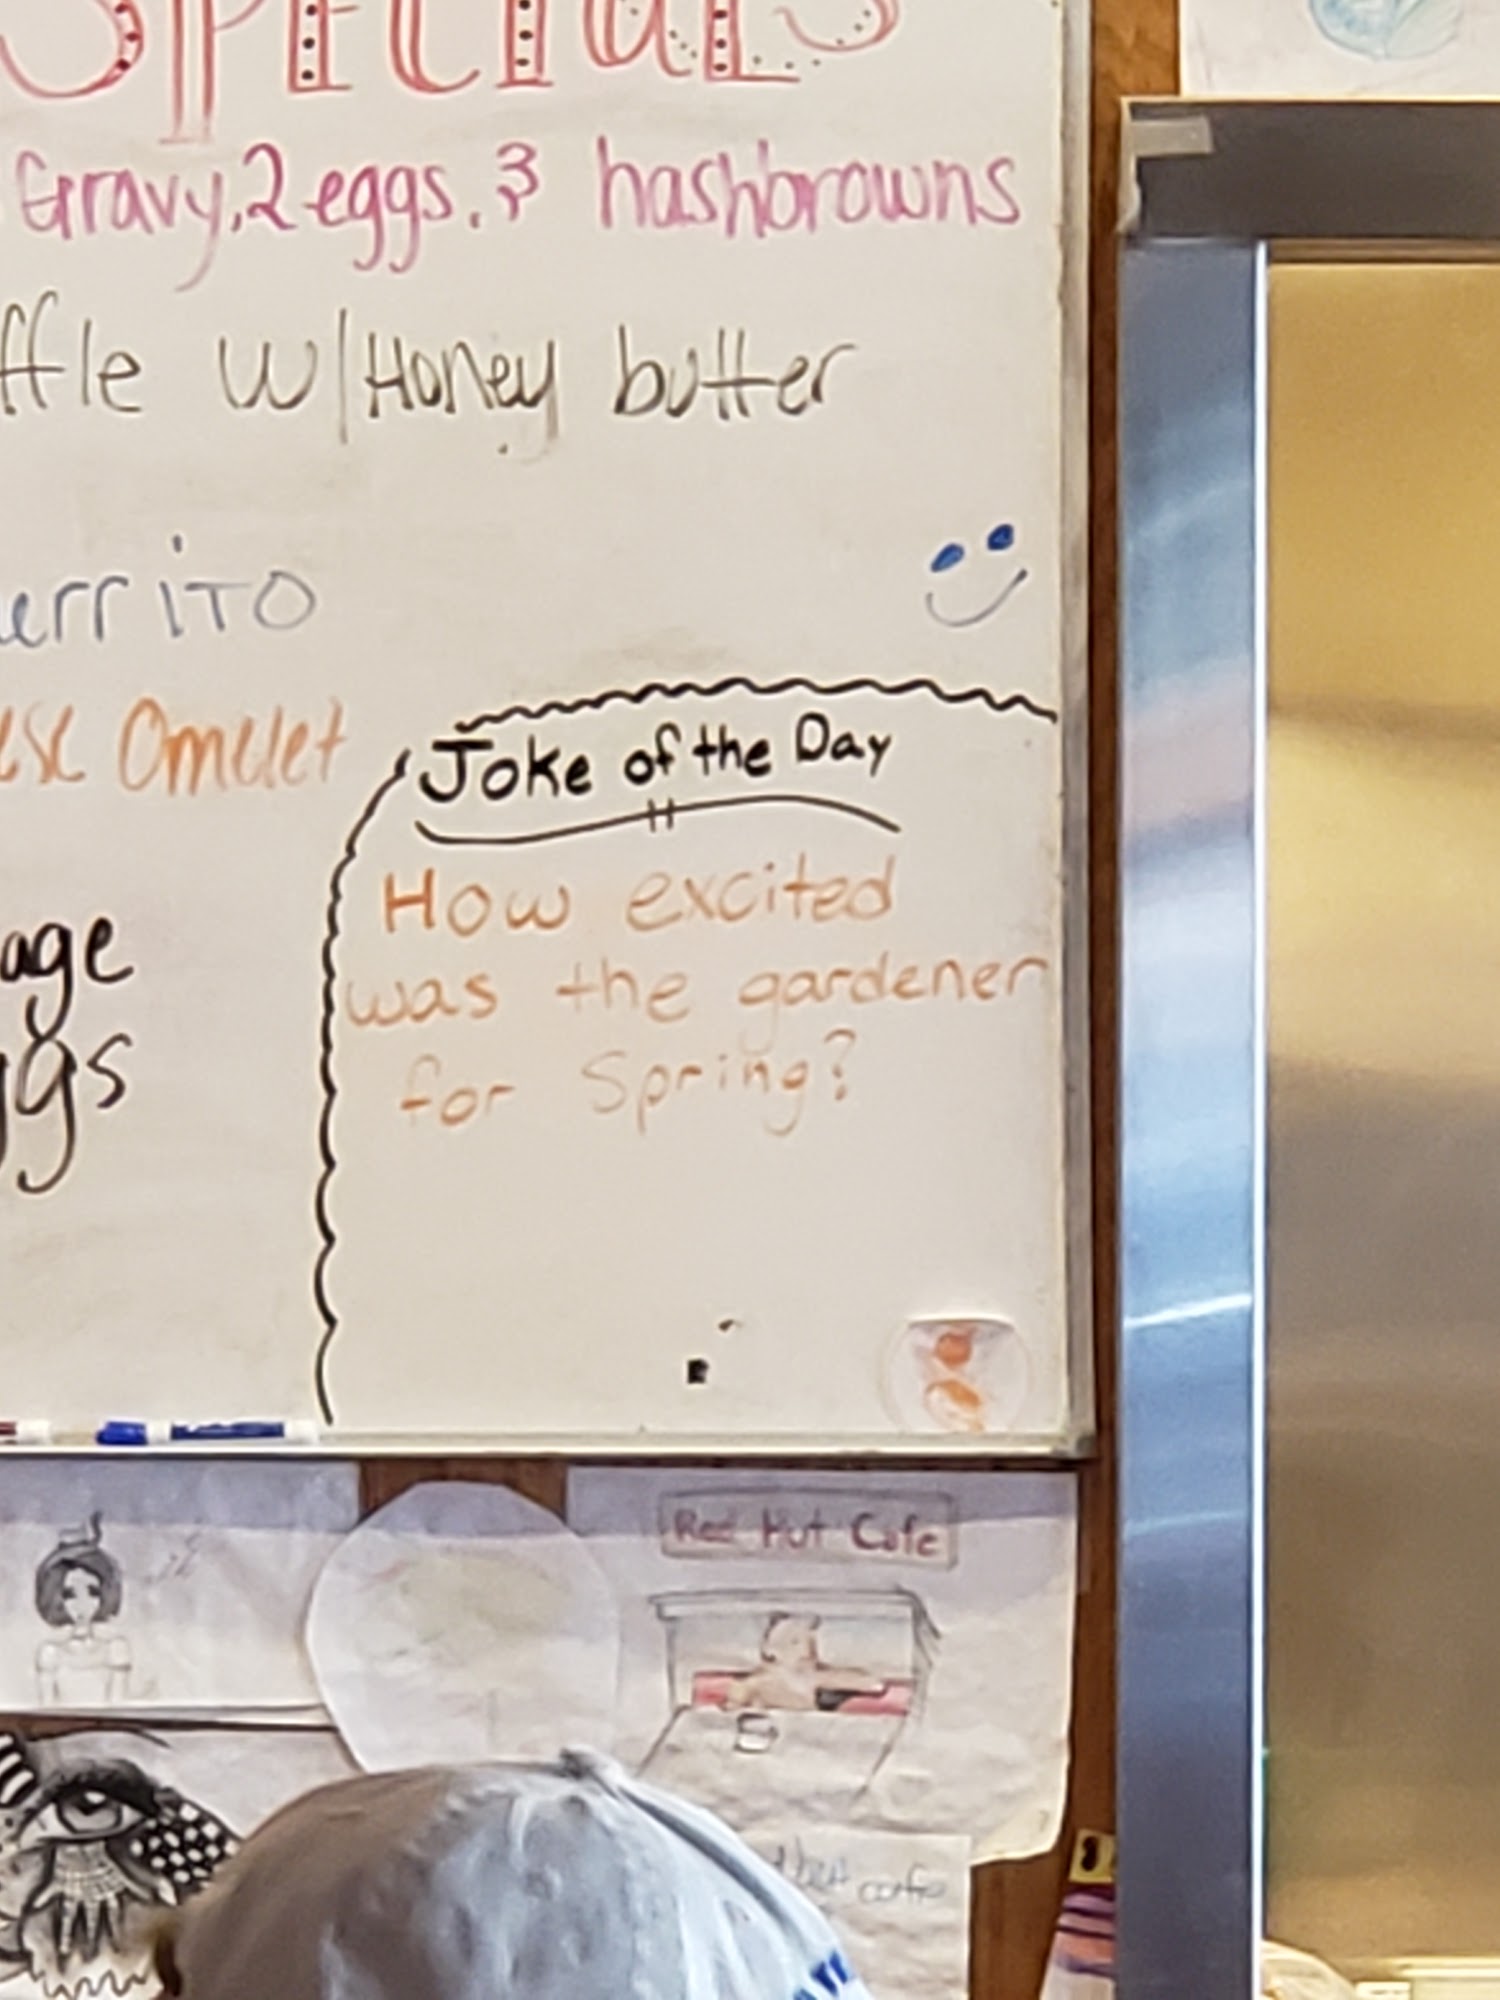 SPECIALS
Gravy, 2 eggs, & hashbrowns
ffle w/Honey butter
urrito
ese Omelet
age
ggs
Joke of the Day
How excited
was the gardener
for Spring?
Red Hut Cafe